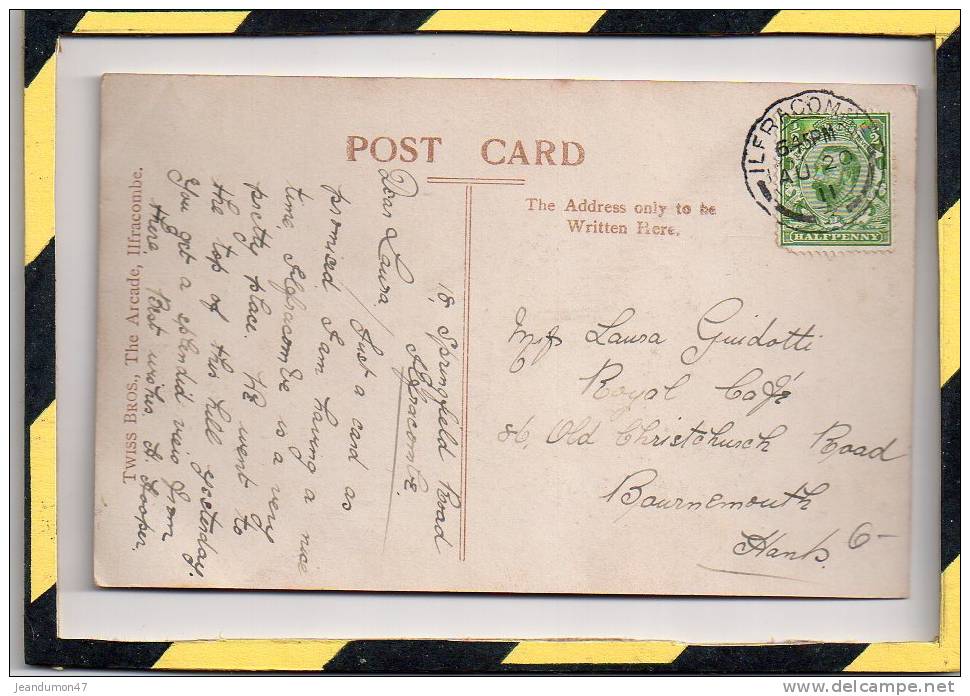 POST CARD
The Address only to be
Written Here.
ILFRACOMBE
6.45PM
AU 20
11
HALFPENNY
TWISS BROS., THE ARCADE, ILFRACOMBE.
18, Springfield Road
Ilfracombe.
Dear Laura,
Just a card as
promised. I am having a nice
time. Ilfracombe is a very
pretty place. We went to
the top of this hill yesterday.
You get a splendid veiw from
there. Best wishes. A. Hooper.
Miss Laura Guidotti
Royal Café
Old Christchurch Road
Bournemouth
Hants.
6-
jeandumon47
©delcampe.net